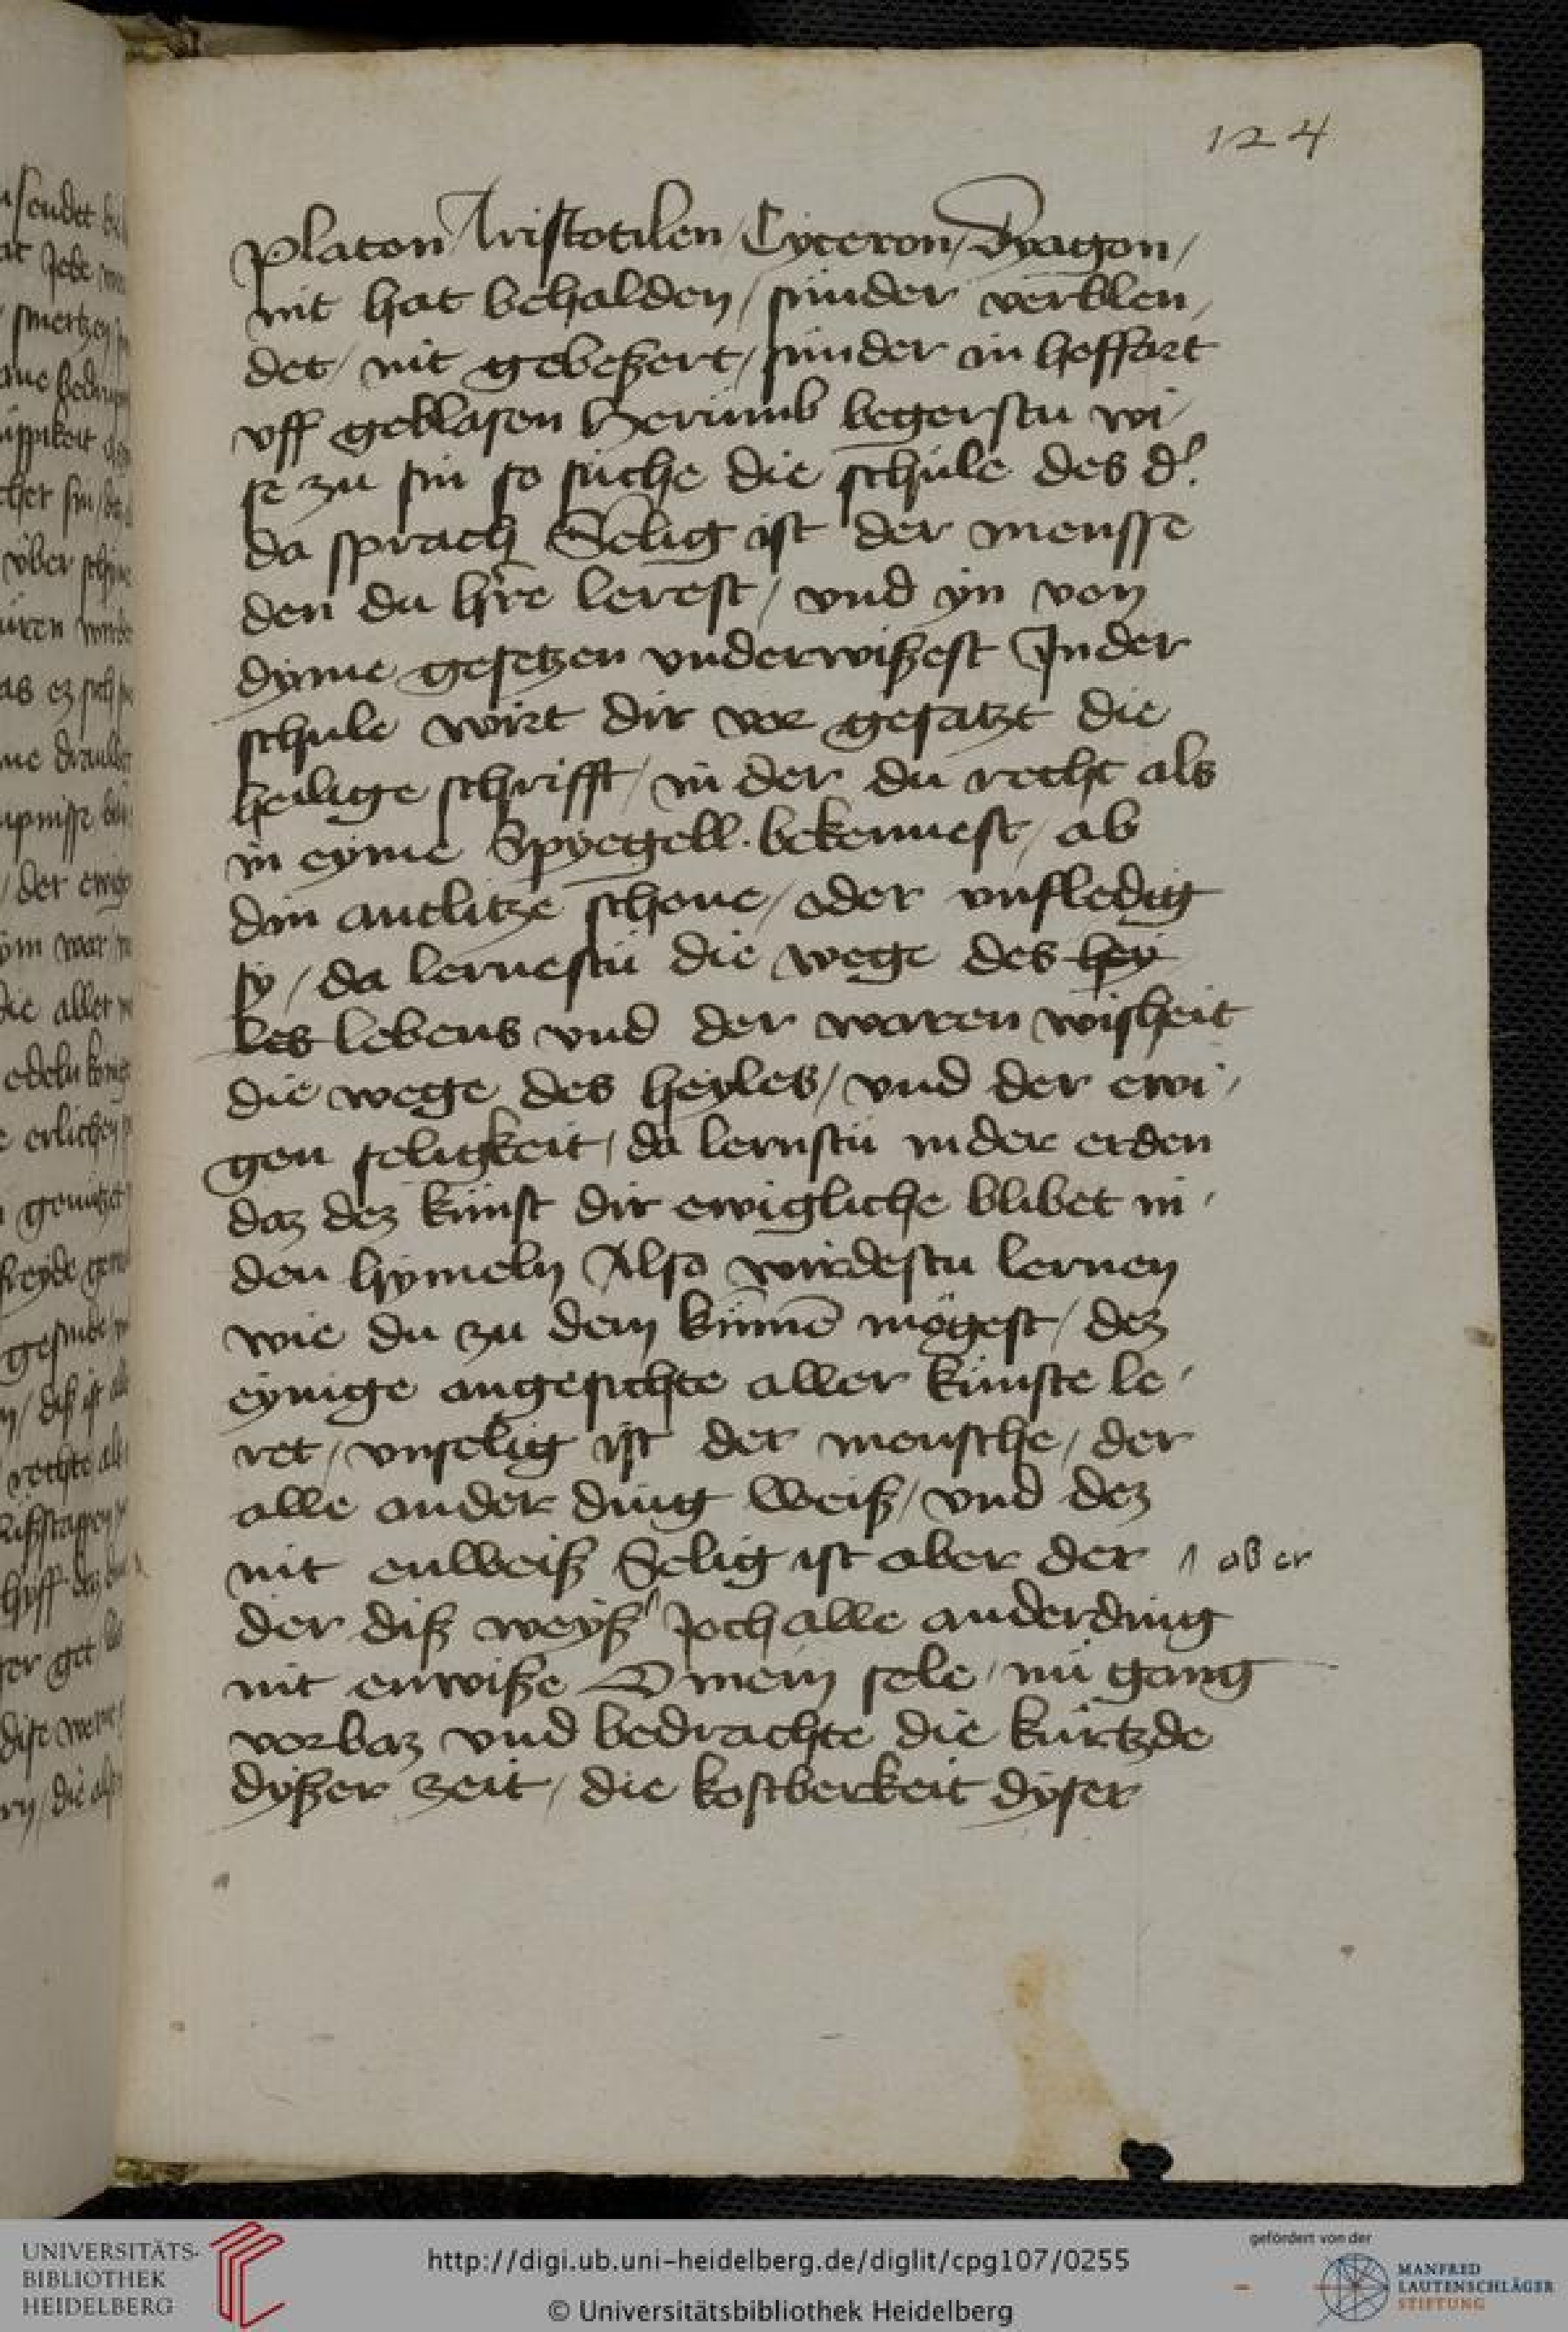 124
Platon / Aristotilen / Cyceron / Dyagon /
nit hat behalden / sunder verblen /
det / nit gebeßert / sunder in hoffart
vff geblasen Herumb begerstu wi /
se zu sin so suche die schule des d'
da sprach Selig ist der mensse
den du h're lerest / vnd yn von
dyme gesetzen vnderwißest In der
schule wirt dir vor gesatzt die
heilige schrifft / in der du recht als
in eyme Spyegell bekennest / ab
din antlitze schone / oder vnfledig
sy / da lernestu die wege des hey
les lebens vnd der waren wisheit
die wege des heyles / vnd der ewi /
gen seligkeit / da lernstu in der erden
daz dez kunst dir ewigliche blibet in /
den hymeln Also wirdestu lernen
wie du zu dem kumē mögest / dez
eynige angesichte aller kunste le /
ret / vnselig ist der mensche / der
alle ander ding weiß / vnd dez
nit enweiß Selig ist aber der / ab er
der diß weyß Joch alle ander ding
nit enwiße O mein sele / nu gang
vorbaz vnd bedrachte die kurtzde
dyßer zeit / die kostberkeit dyser
UNIVERSITÄTS-
BIBLIOTHEK
HEIDELBERG
http://digi.ub.uni-heidelberg.de/diglit/cpg107/0255
© Universitätsbibliothek Heidelberg
gefördert von der
MANFRED
LAUTENSCHLÄGER
STIFTUNG